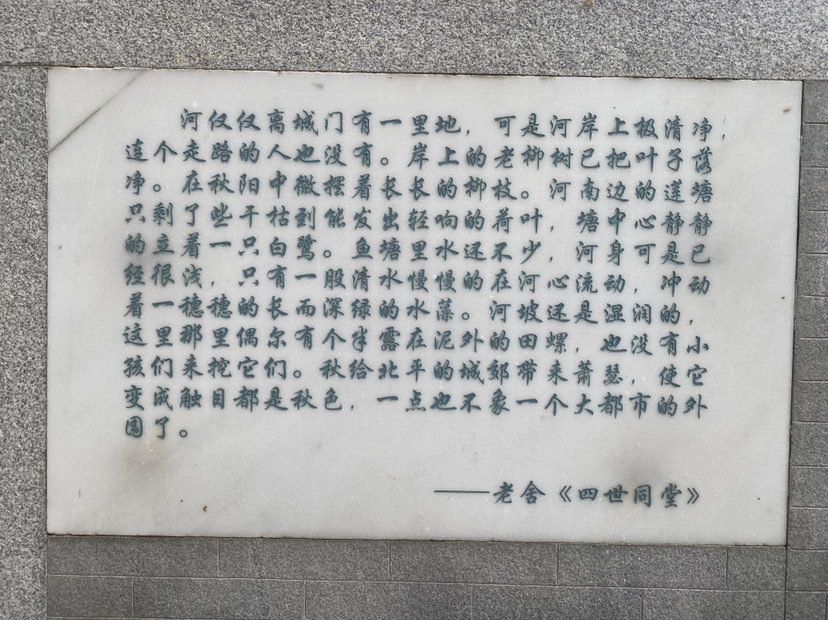 河仅仅离城门有一里地，可是河岸上极清净，
连个走路的人也没有。岸上的老柳树已把叶子落
净。在秋阳中微摆着长长的柳枝。河南边的莲塘
只剩了些干枯到能发出轻响的荷叶，塘中心静静
的立着一只白鹭。鱼塘里水还不少，河身可是已
经很浅，只有一股清水慢慢的在河心流动，冲动
着一穗穗的长而深绿的水藻。河坡还是湿润的，
这里那里偶尔有个半露在泥外的田螺，也没有小
孩们来挖它们。秋给北平的城郊带来萧瑟，使它
变成触目都是秋色，一点也不象一个大都市的外
围了。
——老舍《四世同堂》